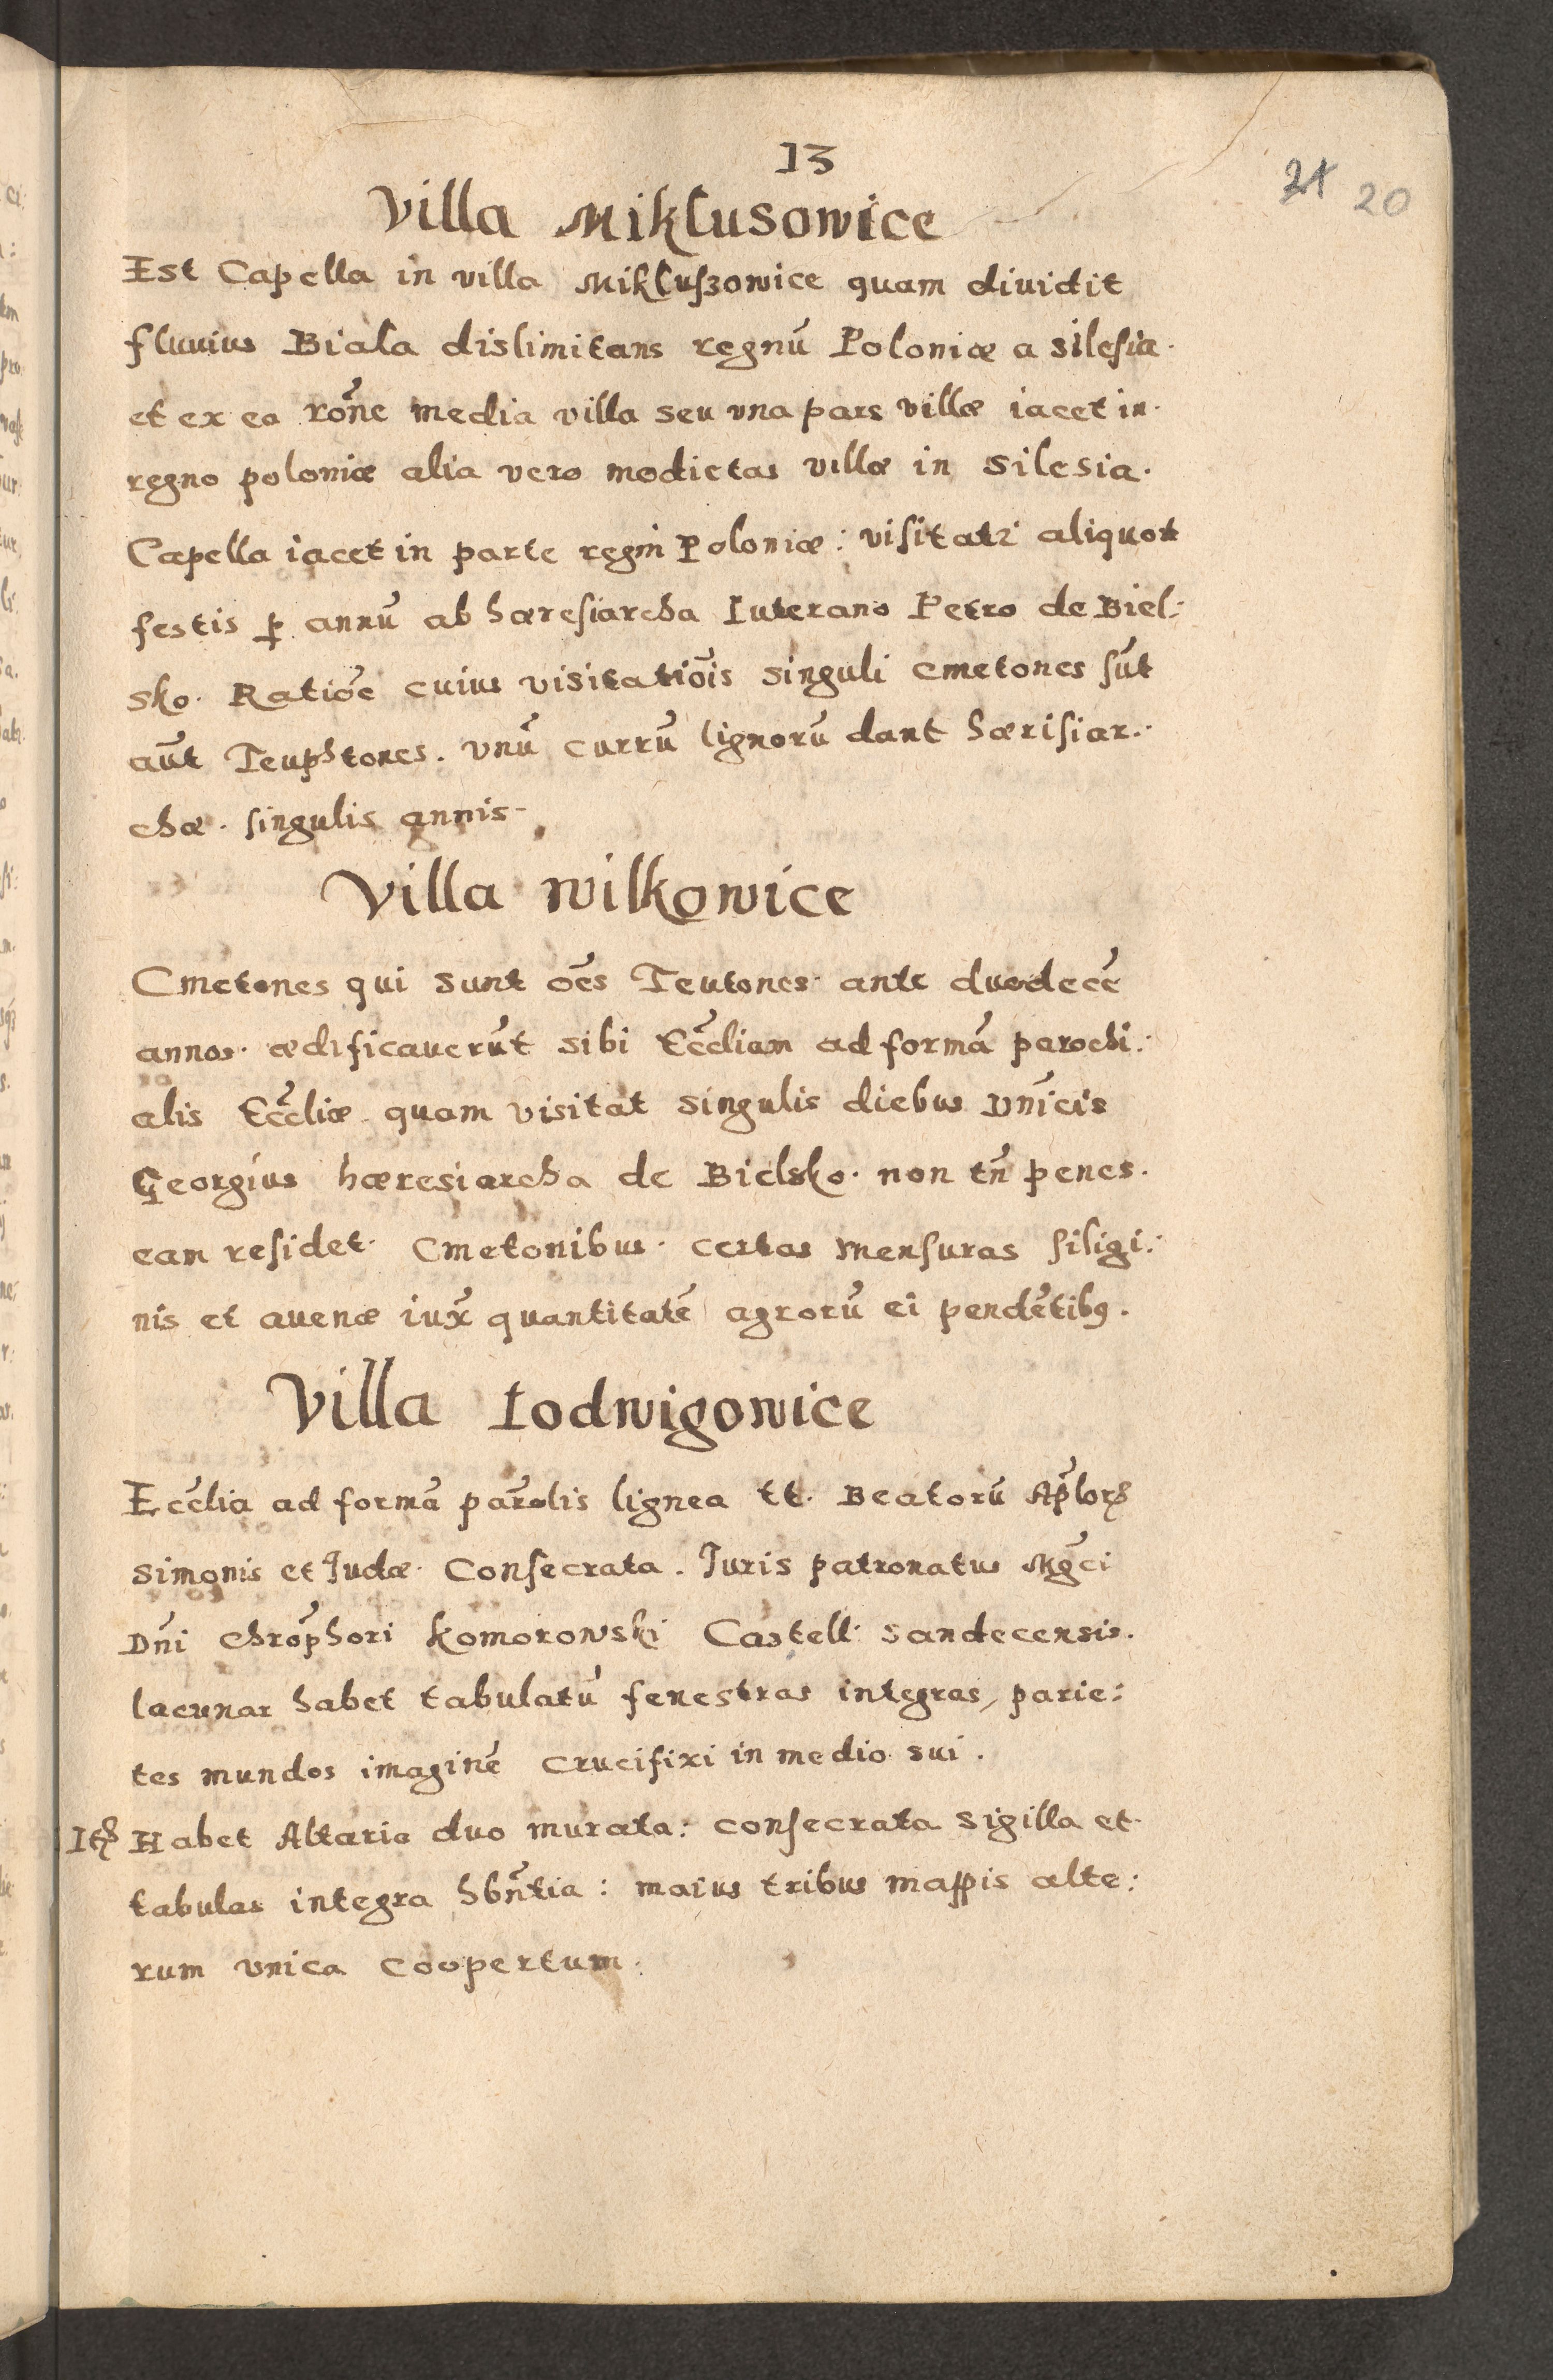 13
21 20
Villa Miklusowice
Est Capella in villa Mikluszowice quam diuidit
fluuius Biala dislimitans regnũ Poloniæ a Silesia.
et ex ea rõne media villa seu vna pars villæ iacet in.
regno poloniæ alia vero modietas villæ in Silesia.
Capella iacet in parte regni Poloniæ: visitatr aliquot
festis ꝑ annũ ab hæresiarcha Luterano Petro de Biel:
sko. Ratiõe cuius visitatiõis singuli cmetones sũt
aũt Teuphtones. vnũ currũ lignorũ dant hærisiar:
chæ. singulis annis
Villa Wilkowice
Cmetones qui sunt oẽs Teutones ante duodecẽ
annos. ædificauerũt sibi Ecc̃liam ad formã parochi:
alis Ecc̃liæ quam visitat singulis diebus Dñicis
Georgius hæresiarcha de Bielsko. non tñ penes.
eam residet. Cmetonibus. certas mensuras siligi:
nis et auenæ iux̃ quantitatẽ agrorũ ei pendẽtibꝯ.
Villa Lodwigowice
Ecc̃lia ad formã parõlis lignea tt. Beatorũ Ap̃lorꝝ
Simonis et Judæ. Consecrata. Juris patronatus Mg̃ci
Dñi Chrõphori Komorowski Castell: Sandecensis.
lacunar habet tabulatũ fenestras integras, parie:
tes mundos imaginẽ Crucifixi in medio sui.
Itꝫ Habet Altaria duo murata: consecrata sigilla et
tabulas integra hbñtia: maius tribus mappis alte:
rum vnica coopertum.